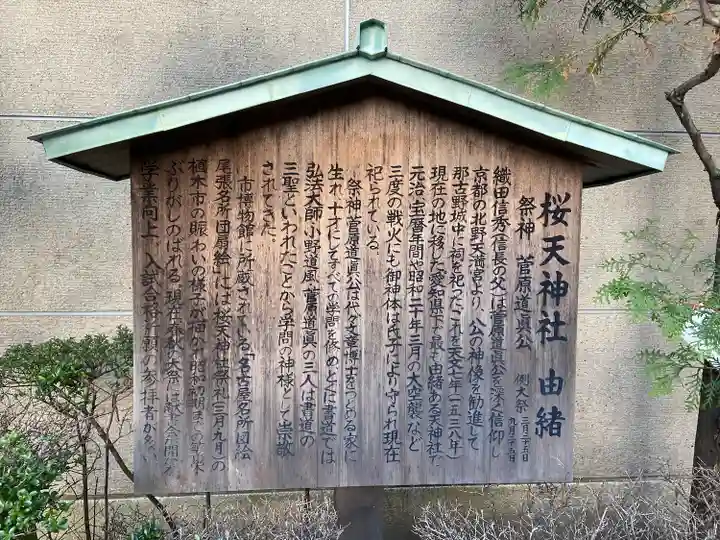 桜天神社 由緒
祭神 菅原道眞公 例大祭 三月二十五日 九月二十五日
織田信秀(信長の父)は菅原道眞公を深く信仰し
京都の北野天満宮より、公の神像を勧進して
那古野城中に祠を祀ったこれを天文七年(一五三八年)
現在の地に移した愛知県下最も由緒ある天神社で
元治、宝暦年間や昭和二十年三月の大空襲など
三度の戦火にも御神体は氏子により守られ現在
祀られている。
祭神菅原道真公は代々文章博士をつとめる家に
生れ、十才にしてすべての学問を修めひとに書道では
弘法大師、小野道風、菅原道真の三人は書道の
三聖といわれたことから学問の神様として崇敬
されてきた。
市博物館に所蔵されている「名古屋名所団絵
尾張名所団扇絵」には桜天神社祭礼(三月九月)の
植木市の賑わいの様子が描かれ昭和初期までの
ぶりがしのばれる。現在春秋の大祭には
学業向上、入試合格祈願の参拝者が多い。